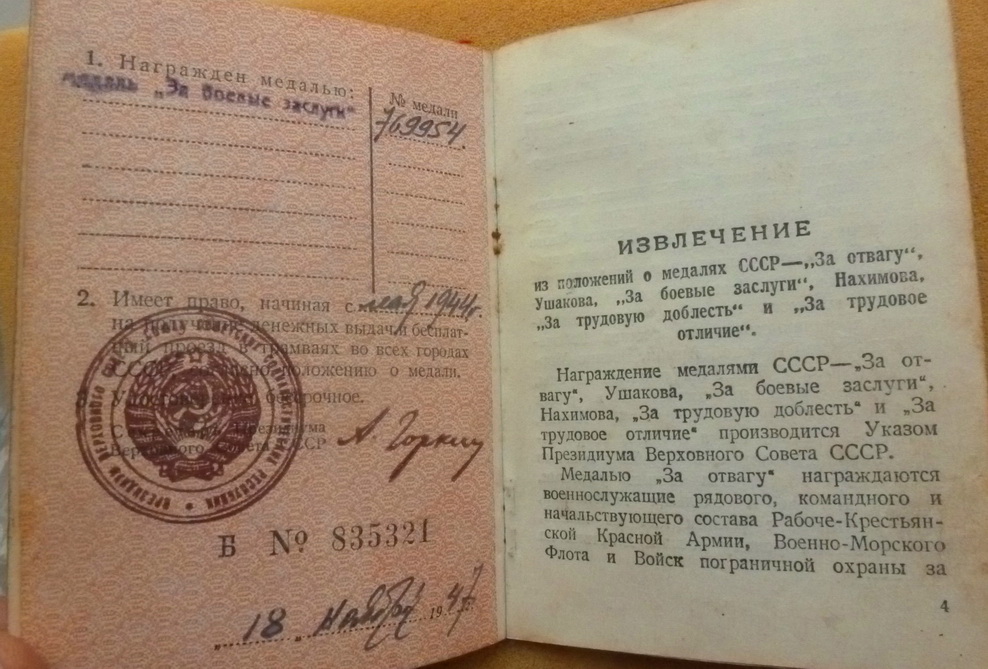 1. Награжден медалью:
медаль „За боевые заслуги"
№ медали
769954
2. Имеет право, начиная с мая 1944 г.
на получение денежных выдач и бесплат-
ный проезд в трамваях во всех городах
СССР согласно положению о медали.
Удостоверение бессрочное.
Секретарь Президиума
Верховного Совета СССР
А. Горкин
Б № 835321
„18" Ноября 1947
ИЗВЛЕЧЕНИЕ
из положений о медалях СССР—„За отвагу",
Ушакова, „За боевые заслуги", Нахимова,
„За трудовую доблесть" и „За трудовое
отличие".
Награждение медалями СССР—„За от-
вагу", Ушакова, „За боевые заслуги",
Нахимова, „За трудовую доблесть" и „За
трудовое отличие" производится Указом
Президиума Верховного Совета СССР.
Медалью „За отвагу" награждаются
военнослужащие рядового, командного и
начальствующего состава Рабоче-Крестьян-
ской Красной Армии, Военно-Морского
Флота и Войск пограничной охраны за
4